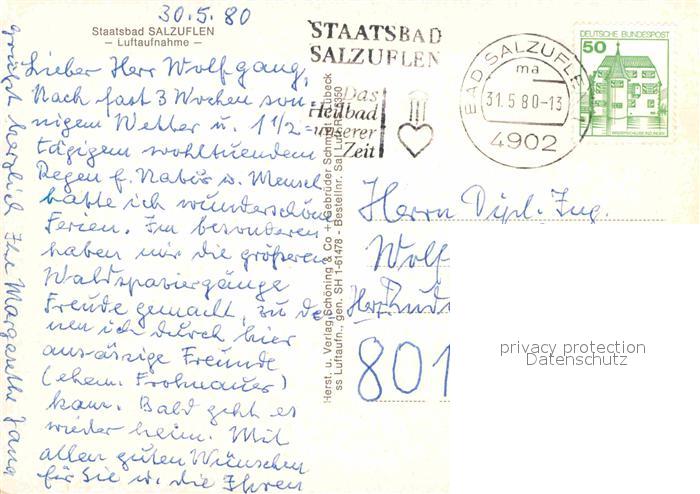 30.5.80
Staatsbad SALZUFLEN
– Luftaufnahme –
Lieber Herr Wolfgang,
Nach fast 3 Wochen son-
nigem Wetter u. 1 1/2 =
tägigem wohltuendem
Regen f. Natur u. Mensch
hatte ich wunderschöne
Ferien. Im besonderen
haben mir die größeren
Waldspaziergänge
Freude gemacht, zu de
nen ich durch hier
ansässige Freunde
(ehem. Frohnauer)
kam. Bald geht es
wieder heim. Mit
allen guten Wünschen
für Sie u. die Ihren
grüßt herzlich Ihre Margarethe
STAATSBAD
SALZUFLEN
Das
Heilbad
unserer
Zeit
BAD SALZUFLEN
ma
31.5.80-13
4902
DEUTSCHE BUNDESPOST
50
Herst. u. Verlag Schöning & Co + Gebrüder Schmidt, Lübeck
ss Luftaufn., gen. SH 1-61478 - Bestellnr. Sal Lu
Herrn Dipl. Ing.
Wolf
801
privacy protection
Datenschutz